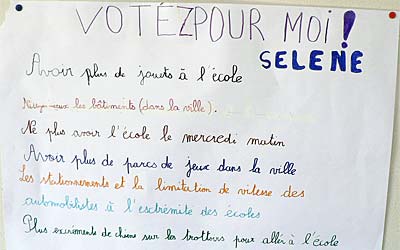 VOTEZ POUR MOI!
SELENE
Avoir plus de jouets à l'école
les bâtiments (dans la ville).
Ne plus avoir l'école le mercredi matin
Avoir plus de parcs de jeux dans la ville
Les stationnements et la limitation de vitesse des
automobilistes à l'esctrémité des écoles
Plus excréments de chiens sur les trottoirs pour aller à l'école